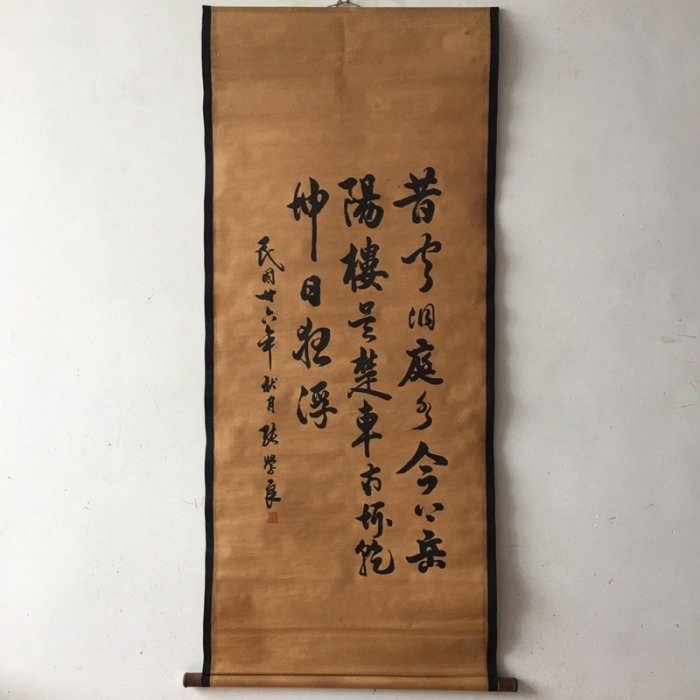 昔聞洞庭水今上岳
陽樓吴楚東南坼乾
坤日夜浮
民国廿六年秋月張學良